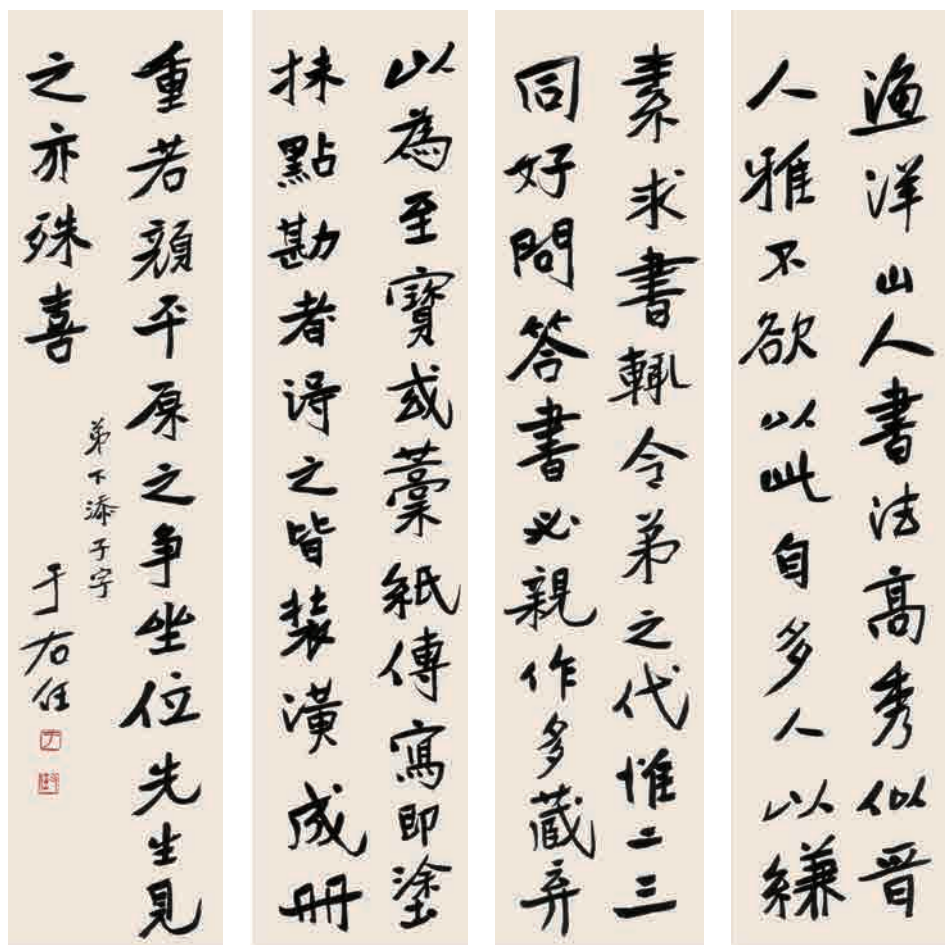 渔洋山人書法高秀似晋
人雅不欲以此自多人以縑
素求書輒令弟之代惟二三
同好問答書必親作多蔵弆
以為至寶或藁紙傳寫即塗
抹點勘者淂之皆装潢成冊
重若顔平原之争坐位先生見
之亦殊喜
弟下添子字
于右任